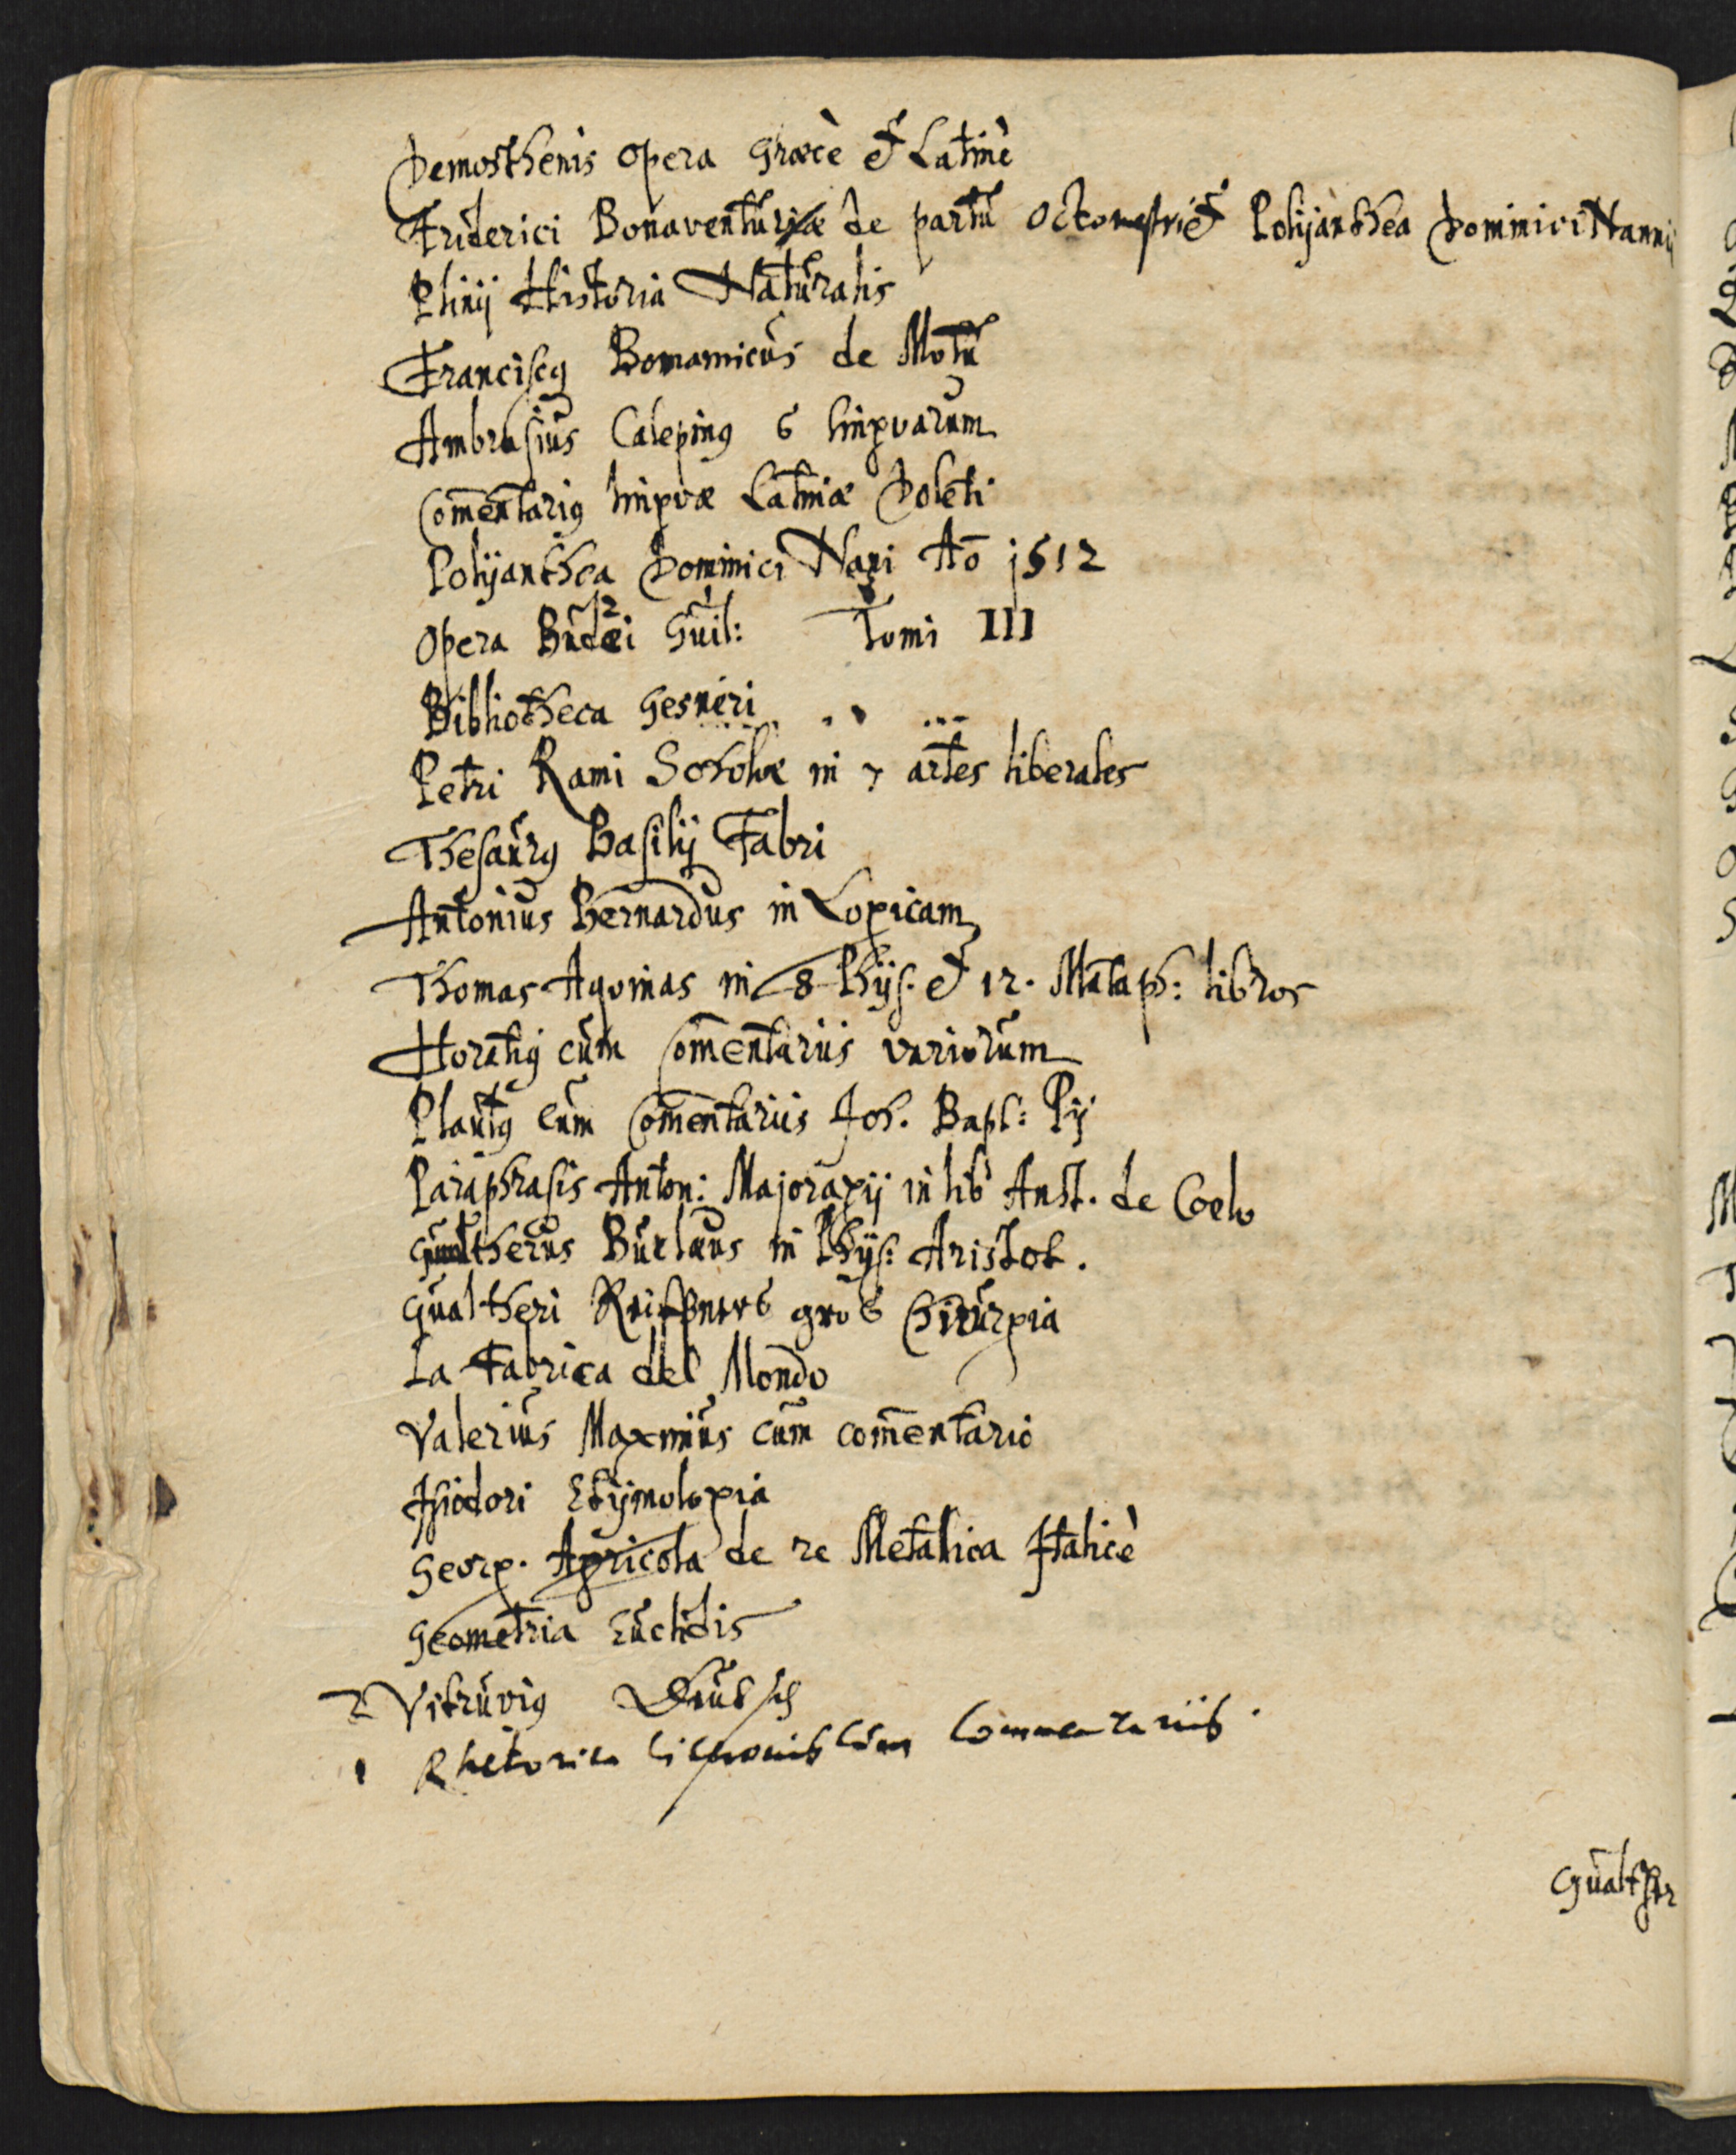 Demosthenis opera Græcè et Latinè
Friderici Bonaventuriæ de partu octomestri et Polyanthea Dominici Nannij
Plinij Historia Naturalis
Franciscꝰ Bonamicus de Motu
Ambrosius Calepinꝰ 6 linguarum
Com̄entariꝰ linguæ Latinæ Doleti
Polyanthea Dominici Nani Ao 1512
Opera Budæi Guil: Tomi III
Bibliotheca Gesneri
Petri Rami Scholæ in 7 artes liberales
Thesaurꝰ Basilij Fabri
Antonius Bernardus in Logicam
Thomas Aquinas in 8 Phys. et 12. Metaph: libros
Horatiꝰ cum Com̄entariis variorum
Plautꝰ cum Com̄entariis Joh. Bapt: Pij
Paraphrasis Anton: Majoragij in lib Arist. de Coelo
Gualtherus Burlæus in Phys: Aristot.
Gualtheri Reiffners groß Chirurgia
La Fabrica del Mondo
Valerius Maximus cum com̄entario
Isidori Etymologia
Georg. Agricola de re Metallica Italicè
Geometria Euclidis
2 Vitruviꝰ Deutsch
1 Rhetorica Ciceronis cum Commentariis.
Gualther